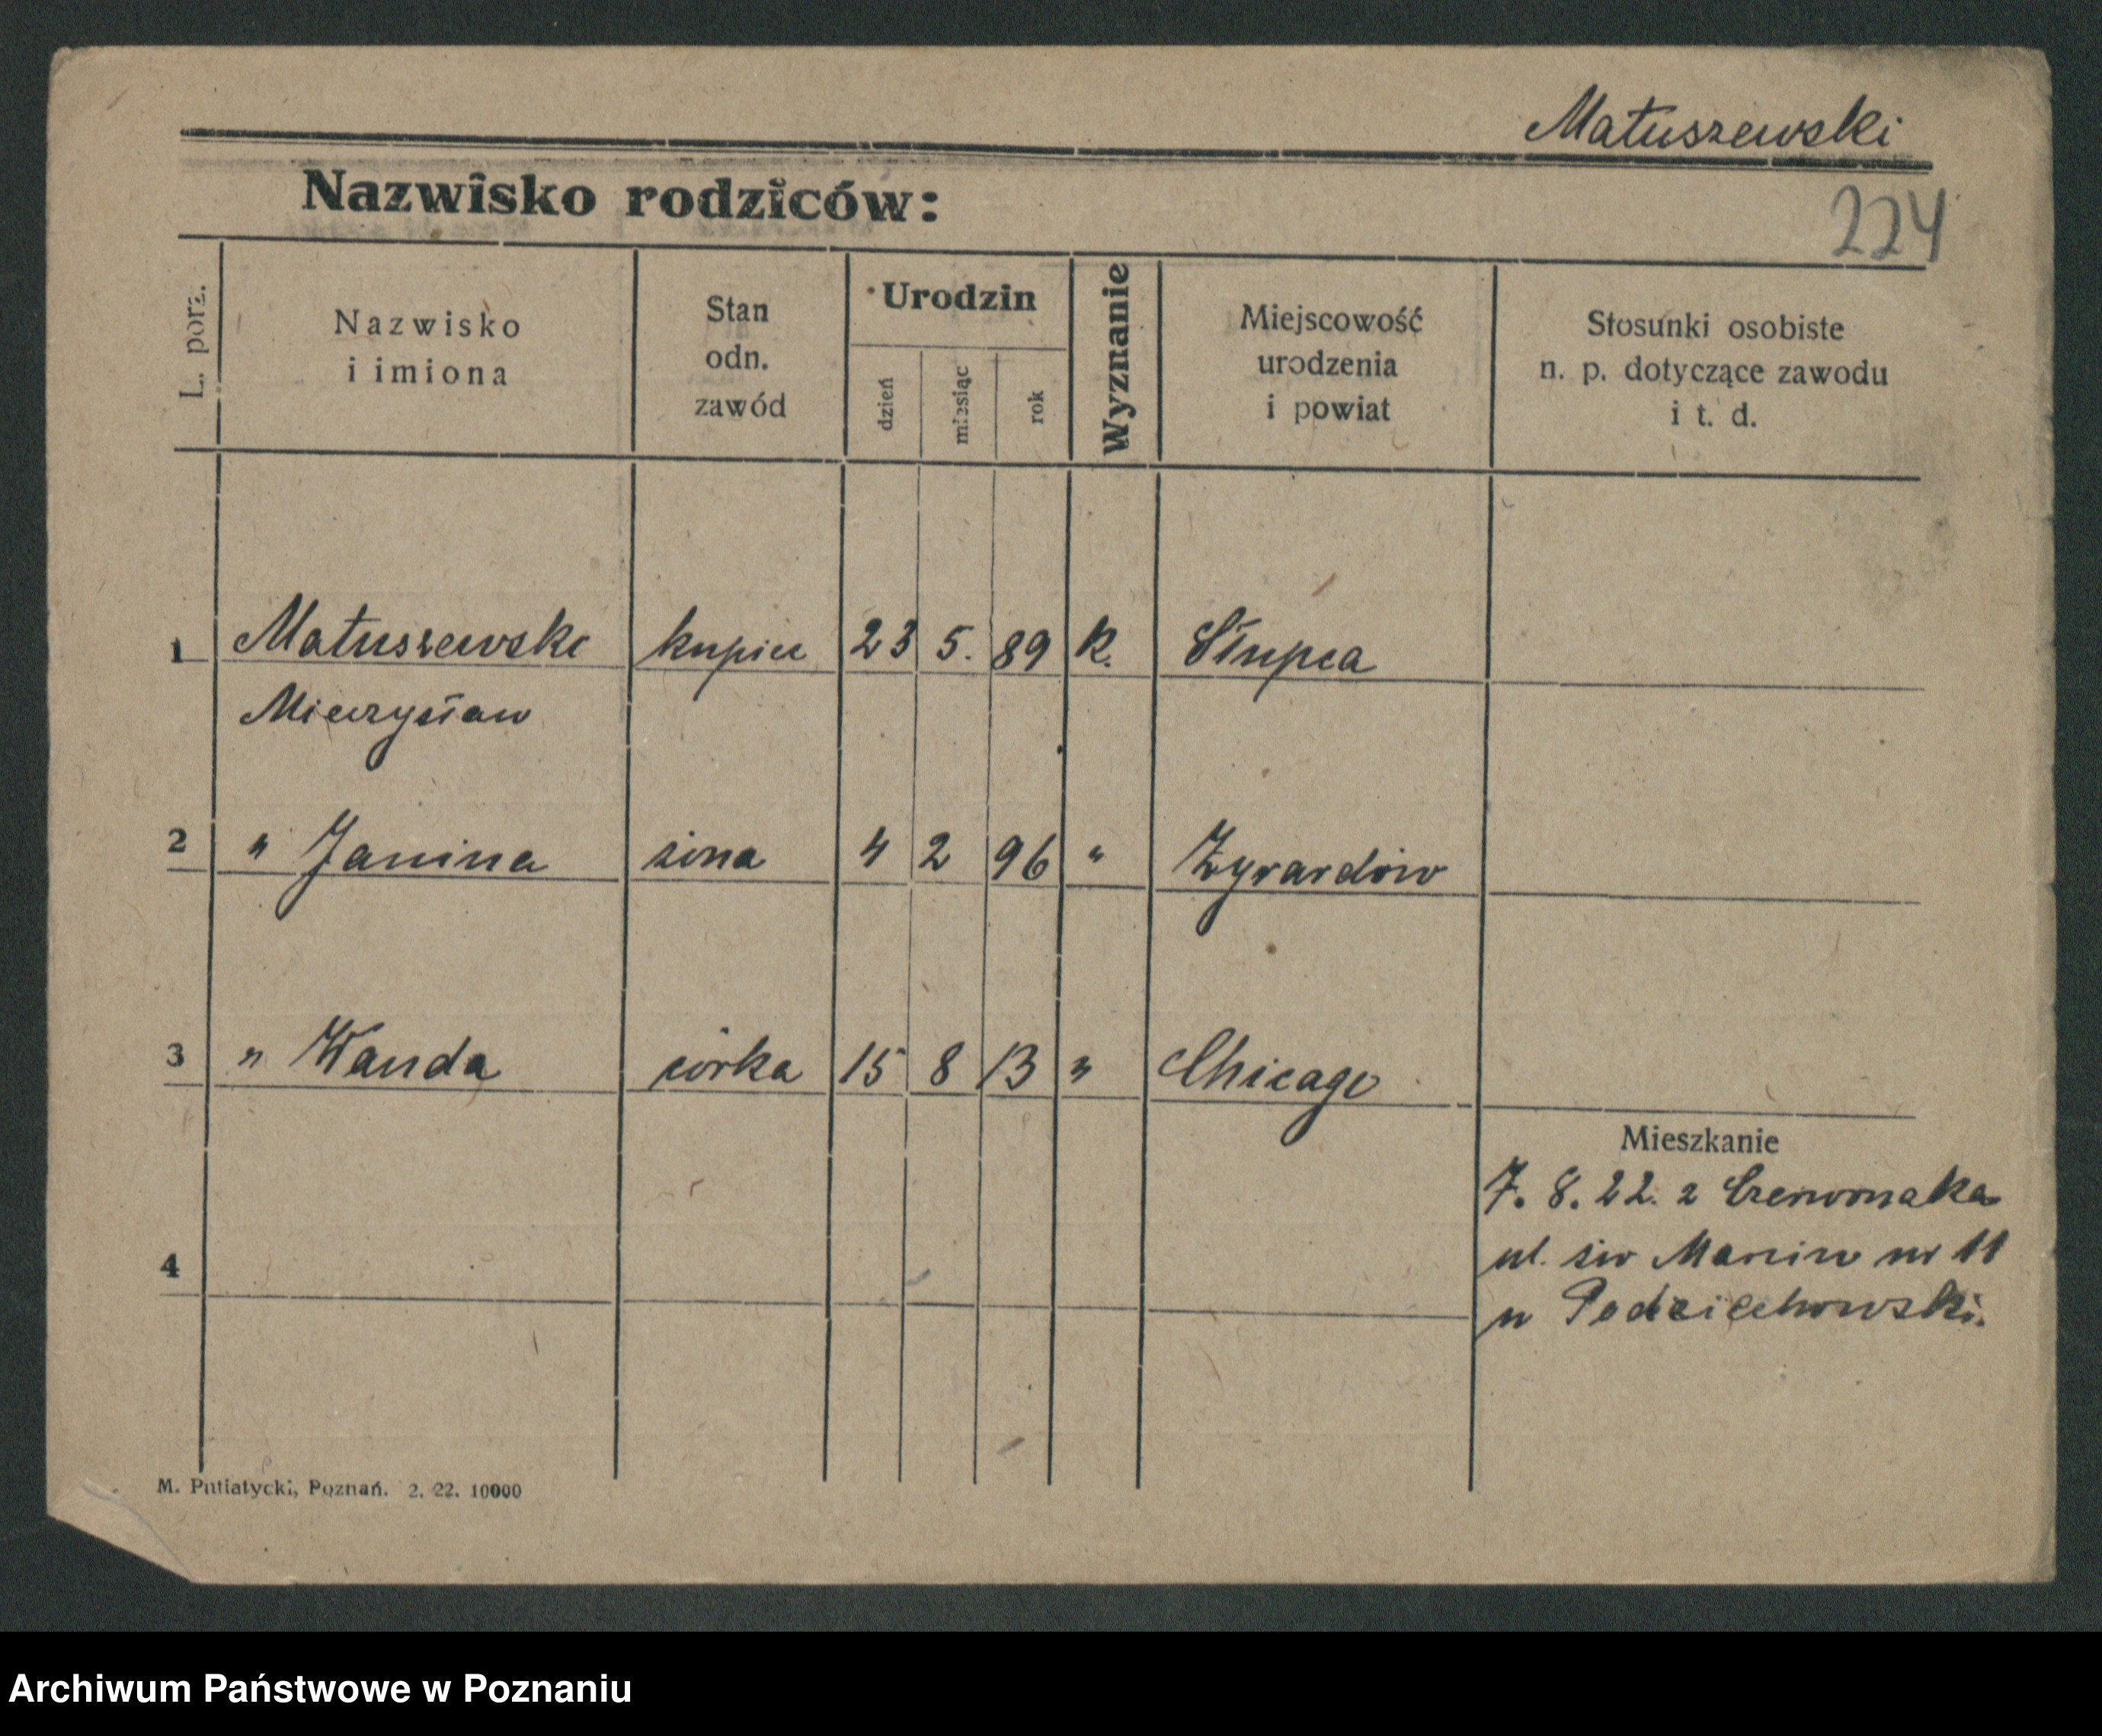 Matuszewski
Nazwisko rodziców:
224
L. porz.
Nazwisko
i imiona
Stan
odn.
zawód
Urodzin
dzień
miesiąc
rok
Wyznanie
Miejscowość
urodzenia
i powiat
Stosunki osobiste
n. p. dotyczące zawodu
i t. d.
1 Matuszewski kupiec 23 5. 89 k. Słupca
Mieczysław
2 " Janina żona 4 2 96 " Żyrardów
3 " Wanda córka 15 8 13 " Chicago
Mieszkanie
7. 8. 22. z Czerwonaka
ul. św Marcin nr 11
4
u Podziechowski.
M. Putiatycki, Poznań. 2. 22. 10000
Archiwum Państwowe w Poznaniu